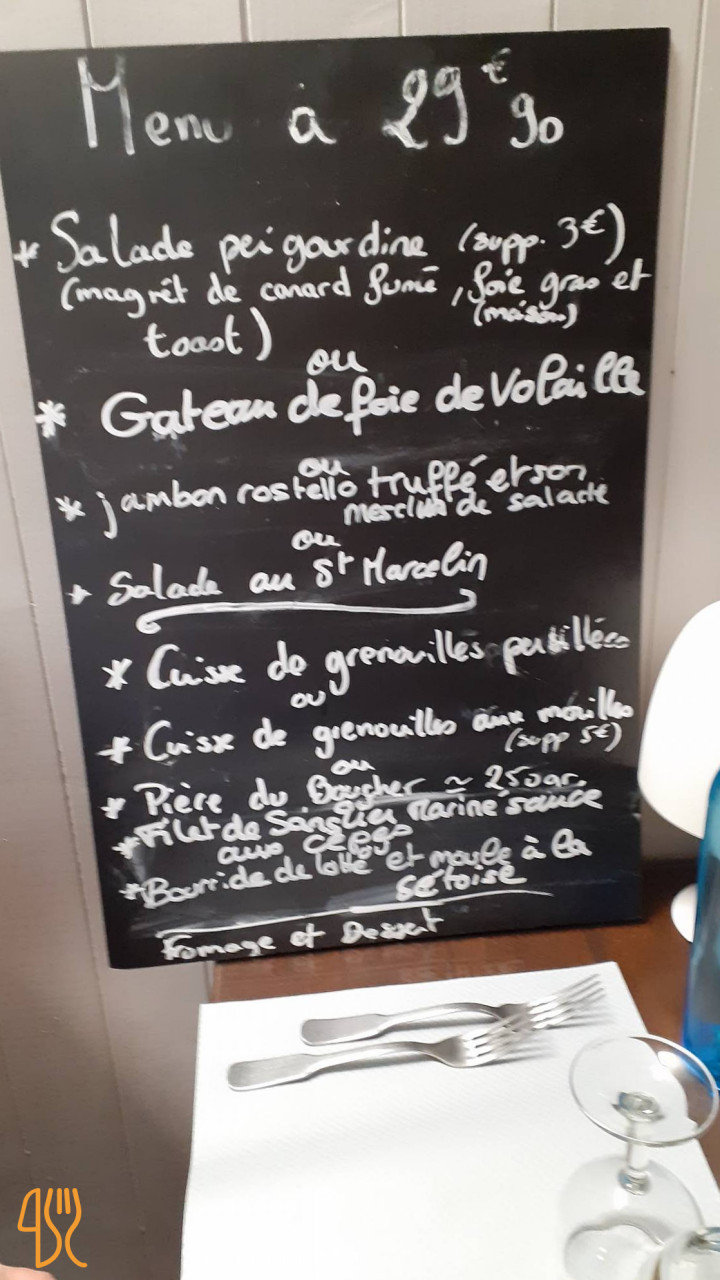 Menu à 29€90
* Salade perigourdine (supp. 3€)
(magrêt de canard fumé, foie gras et
(maison)
toast)
ou
* Gateau de foie de Volaille
ou
* jambon rostello truffé et son
mesclun de salade
ou
* Salade au St Marcelin
* Cuisse de grenouilles persillées
ou
* Cuisse de grenouilles aux morilles
(supp 5€)
ou
* Pière du Boucher ≃ 250gr.
* Filet de Sanglier Mariné sauce
aux cèpes
* Bourride de lotte et moule à la
Sétoise
Fromage et Dessert